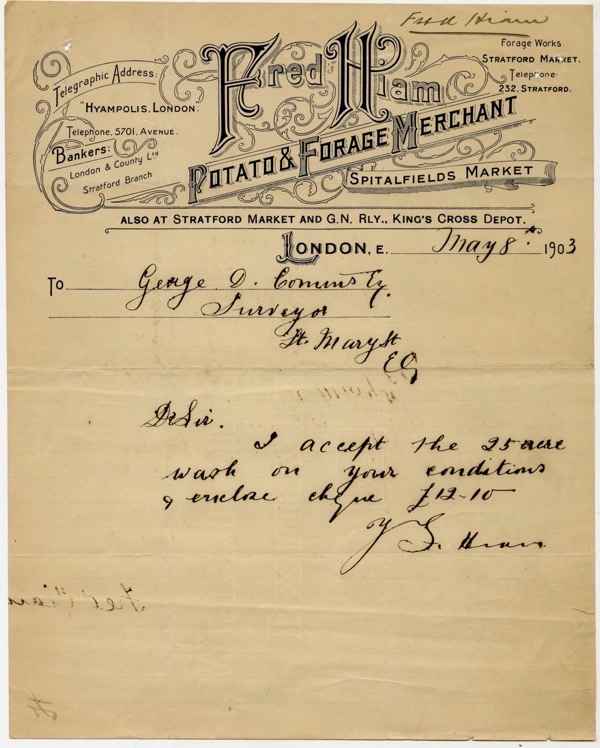 Fred Hiam
Telegraphic Address:
"Hyampolis, London."
Telephone, 5701, Avenue.
Bankers:
London & County Ltd
Stratford Branch
Fred Hiam
Potato & Forage Merchant
Spitalfields Market
Forage Works
Stratford Market.
Telephone:
232, Stratford.
Also at Stratford Market and G.N. Rly., King's Cross Depot.
London, E. May 8th 1903
To George D. Comins Esq
Surveyor
St. Mary St
Dr Sir.
I accept the 25 acre
wash on your conditions
& enclose cheque £12-10
Hiam
Fred Hiam